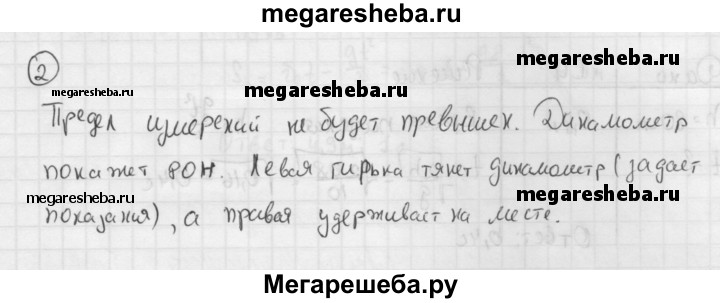 megaresheba.ru
2
megaresheba.ru
megaresheba.ru
megaresheba.ru
Предел измерений не будет превышен. Динамометр
покажет 80Н. Левая гирька тянет динамометр (задает
megaresheba.ru
megaresheba.ru
показания), а правая удерживает на месте.
Мегарешеба.ру